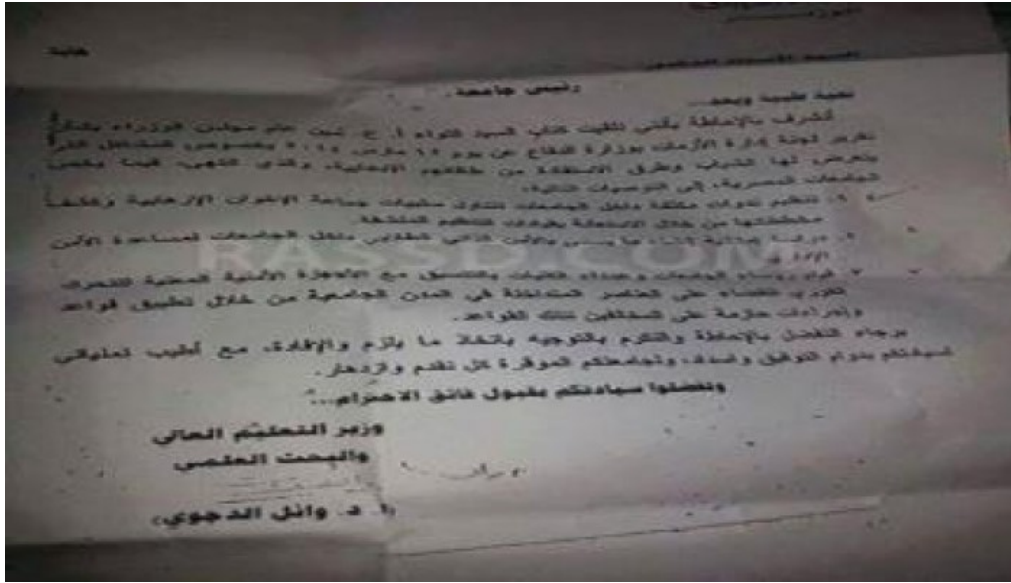 الوزير
هامة
السيد الأستاذ الدكتور
رئيس جامعة
تحية طيبة وبعد...
أتشرف بالإحاطة بأنني تلقيت كتاب السيد اللواء أ. ح. أمين عام مجلس الوزراء بشأن
تقرير لجنة إدارة الأزمات بوزارة الدفاع عن يوم مارس بخصوص المشاكل التي
يتعرض لها الشباب وطرق الاستفادة من طاقاتهم الإيجابية، والذي انتهى، فيما يخص
الجامعات المصرية، إلى التوصيات التالية:
١. تنظيم ندوات مكثفة داخل الجامعات تتناول سلبيات جماعة الإخوان الإرهابية وكشف
مخططاتها من خلال الاستعانة بقيادات التنظيم المنشقة.
٢. دراسة إمكانية إنشاء ما يسمى بالأمن الذاتي الطلابي داخل الجامعات لمساعدة الأمن
RASSD.COM
٣. قيام رؤساء الجامعات وعمداء الكليات بالتنسيق مع الأجهزة الأمنية المعنية للتحرك
الفوري للقضاء على العناصر المتداخلة في المدن الجامعية من خلال تطبيق قواعد
وإجراءات حازمة على المخالفين لتلك القواعد.
برجاء التفضل بالإحاطة والتكرم بالتوجيه باتخاذ ما يلزم والإفادة، مع أطيب تمنياتي
لسيادتكم بدوام التوفيق والسداد، ولجامعتكم الموقرة كل تقدم وازدهار.
وتفضلوا سيادتكم بقبول فائق الاحترام...
وزير التعليم العالي
والبحث العلمي
(أ. د. وائل الدجوي)